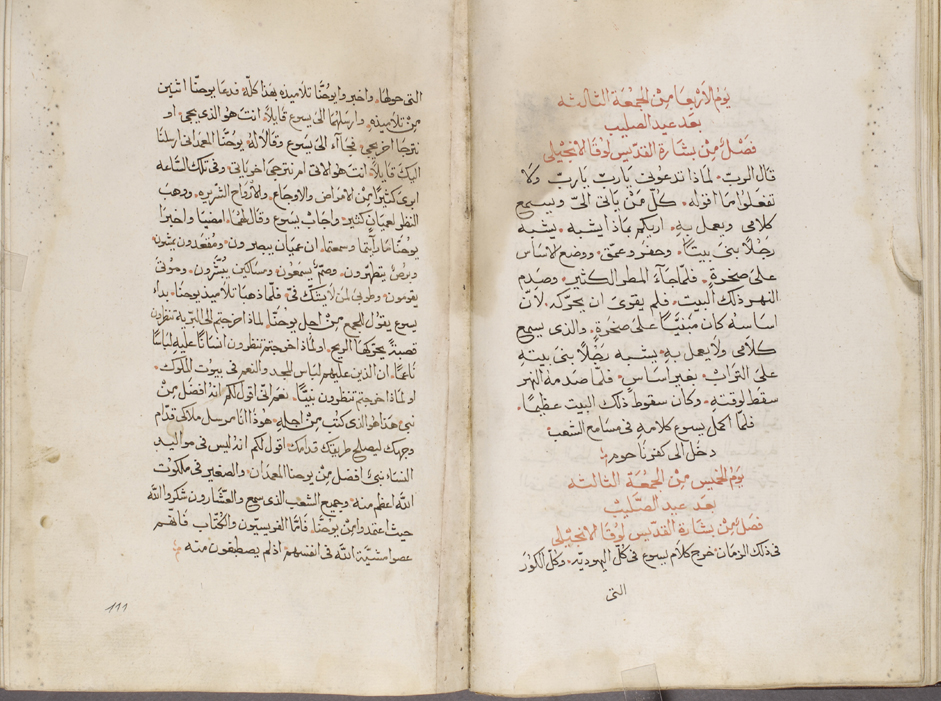 يوم الاربعا من الجمعة الثالثه
بعد عيد الصليب
فصل من بشارة القديس لوقا الانجيلي
قال الرب• لماذا تدعونى يارب يارب• ولا
تفعلوا ما اقوله• كلّ من ياتى اليّ ويسمع
كلامى ويعمل به• اريكم بماذا يشبه• يشبه
رجُلاً بنى بيتاً• وحفر وعمق• ووضع الاساس
على صخرةٍ• فلمّا جاءَ المطر الكثير• وصدم
النهر ذلك البيت• فلم يقوى ان يحرّكه• لانّ
اساسه كان مبنيّاً على صخرةٍ• والذى يسمع
كلامى ولا يعمل به• يشبه رجُلاً بنى بيته
على التراب• بغير اساسٍ• فلمّا صدمه النهر
سقط لوقته• وكان سقوط ذلك البيت عظيماً•
فلمّا اكمل يسوع كلامه فى مسامع الشعب•
دخل الى كفرناحوم
يوم الخميس من الجمعة الثالثه
بعد عيد الصّليب
فصل من بشارة القديس لوقا الانجيلى
فى ذلك الزمان• خرج كلام يسوع فى كلّ اليهوديّه• وكلّ الكوَر
التى
التى حولها• واخبروا يوحنّا تلاميذه بهذا كلّه• فدعا يوحنّا اثنين
من تلاميذه• وارسلهما الى يسوع قايلاً• انت هو الذى يجى• او
نترجا اخر يجى• فجاآء الى يسوع وقالا له• يوحنّا المعمدانى ارسلنا
اليك قايلاً• انت هو الاتى ام نترجى اخر ياتى• وفى تلك السّاعه
ابرى كثيرًا من الامراض والاوجاع• والارواح الشريره• ووهب
النظر لعميان كثير• واجاب يسوع وقال لهما• امضيا واخبرا
يوحنّا ما رايتما وسمعتما• ان عميان يبصرون• ومقعدون يمشون•
وبرص يتطهّرون• وصمّ يسمعون• ومساكين يبشّرون• وموتى
يقومون• وطوبى لمن لا يشك فىّ• فلمّا ذهبا تلاميذ يوحنّا• بداء
يسوع يقول للجمع من اجل يوحنّا• لماذا خرجتم الى البرّية تنظرون
قصبةً يحرّكها الريح• او لماذا خرجتم تنظرون انساناً عليه لباسًا
ناعماً• ان الذين عليهم لباس المجد والنعم فى بيوت الملوك•
او لماذا خرجتم تنظرون نبيّاً• نعم انّى اقول لكم انه افضل من
نبى• هذا هو الذى كتب من اجله• هوذا انا مرسل ملاكى قدّام
وجهك ليصلح طريقك قدامك• اقول لكم انه ليس فى مواليد
النساء نبىّ افضل من يوحنا المعمدان• والصغير فى ملكوت
الله اعظم منه• وجميع الشعب الذى سمع والعشّارون شكروا الله
حيث اعتمدوا من يوحنّا• فامّا الفريسيّون والكتّاب فانهم
عصوا مشيّة الله فى انفسهم اذ لم يصطبغون منه
111